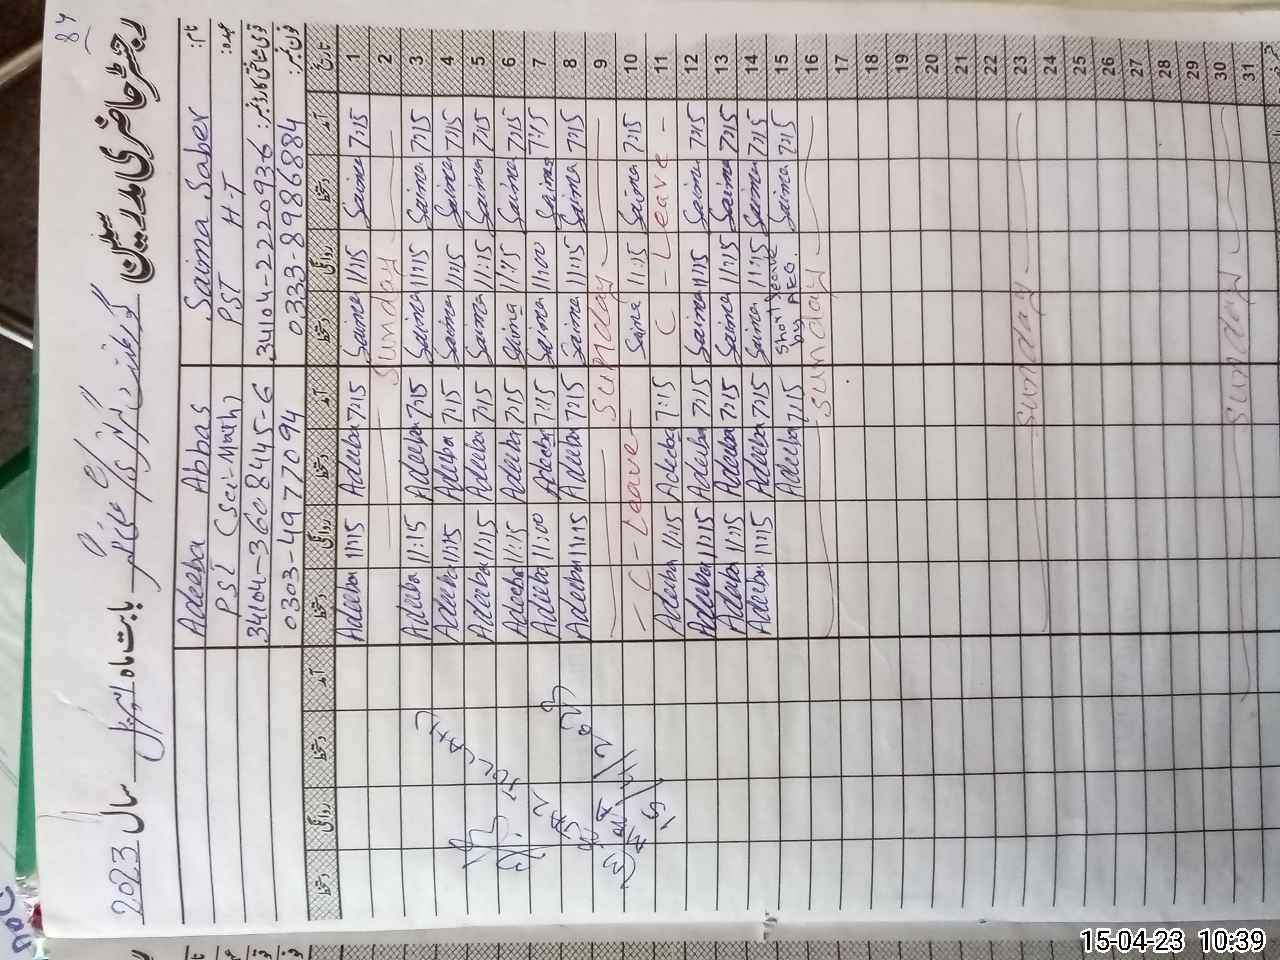 84
رجسٹر حاضری مدرسین
بابت ماہ اپریل سال 2023
نام: Saima Saber Adeeba Abbas
عہدہ: PST H-T PST (Sci-Math)
قومی شناختی کارڈ نمبر: 34104-2220936-6 34104-3608445-6
فون نمبر: 0333-8986884 0303-4977094
تاریخ آمد دستخط روانگی دستخط آمد دستخط روانگی دستخط آمد دستخط روانگی دستخط
1 7:15 Saima 11:15 Saima 7:15 Adeeba 11:15 Adeeba
2 Sunday
3 7:15 Saima 11:15 Saima 7:15 Adeeba 11:15 Adeeba
4 7:15 Saima 11:15 Saima 7:15 Adeeba 11:15 Adeeba
5 7:15 Saima 11:15 Saima 7:15 Adeeba 11:15 Adeeba
6 7:15 Saima 11:15 Saima 7:15 Adeeba 11:15 Adeeba
7 7:15 Saima 11:00 Saima 7:15 Adeeba 11:00 Adeeba
8 7:15 Saima 11:15 Saima 7:15 Adeeba 11:15 Adeeba
9 Sunday
10 7:15 Saima 11:15 Saima - C - Leave -
11 C - Leave - 7:15 Adeeba 11:15 Adeeba
12 7:15 Saima 11:15 Saima 7:15 Adeeba 11:15 Adeeba
13 7:15 Saima 11:15 Saima 7:15 Adeeba 11:15 Adeeba
14 7:15 Saima 11:15 Saima 7:15 Adeeba 11:15 Adeeba
15 7:15 Saima Short Leave by AEO. 7:15 Adeeba
16 Sunday
17
18
19
20
21
22
23 Sunday
24
25
26
27
28
29
30 Sunday
31
15-04-23 10:39